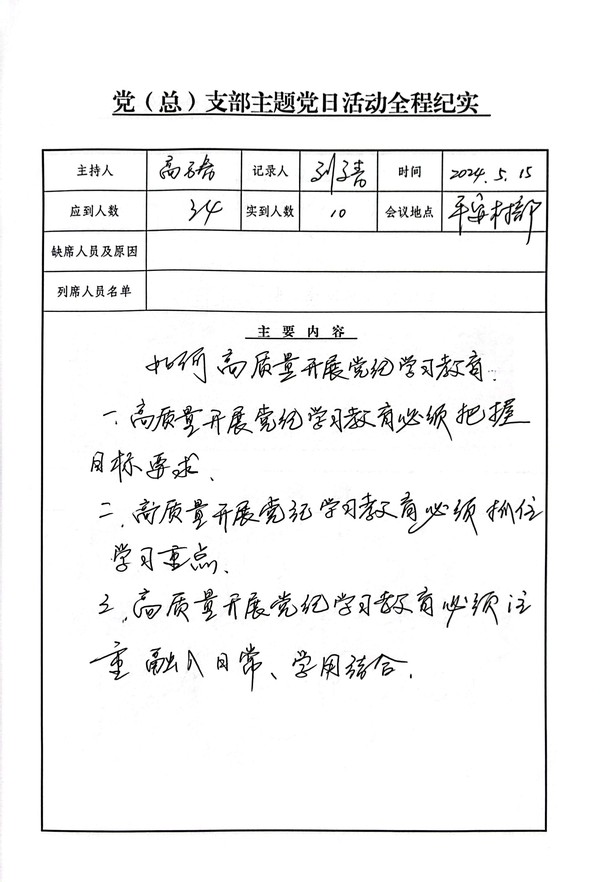 党（总）支部主题党日活动全程纪实
主持人 高 记录人 刘 时间 2024.5.15
应到人数 34 实到人数 10 会议地点 平安村部
缺席人员及原因
列席人员名单
主要内容
如何高质量开展党纪学习教育.
一.高质量开展党纪学习教育必须把握
目标要求、
二、高质量开展党纪学习教育必须抓住
学习重点、
三、高质量开展党纪学习教育必须注
重融入日常、学用结合.